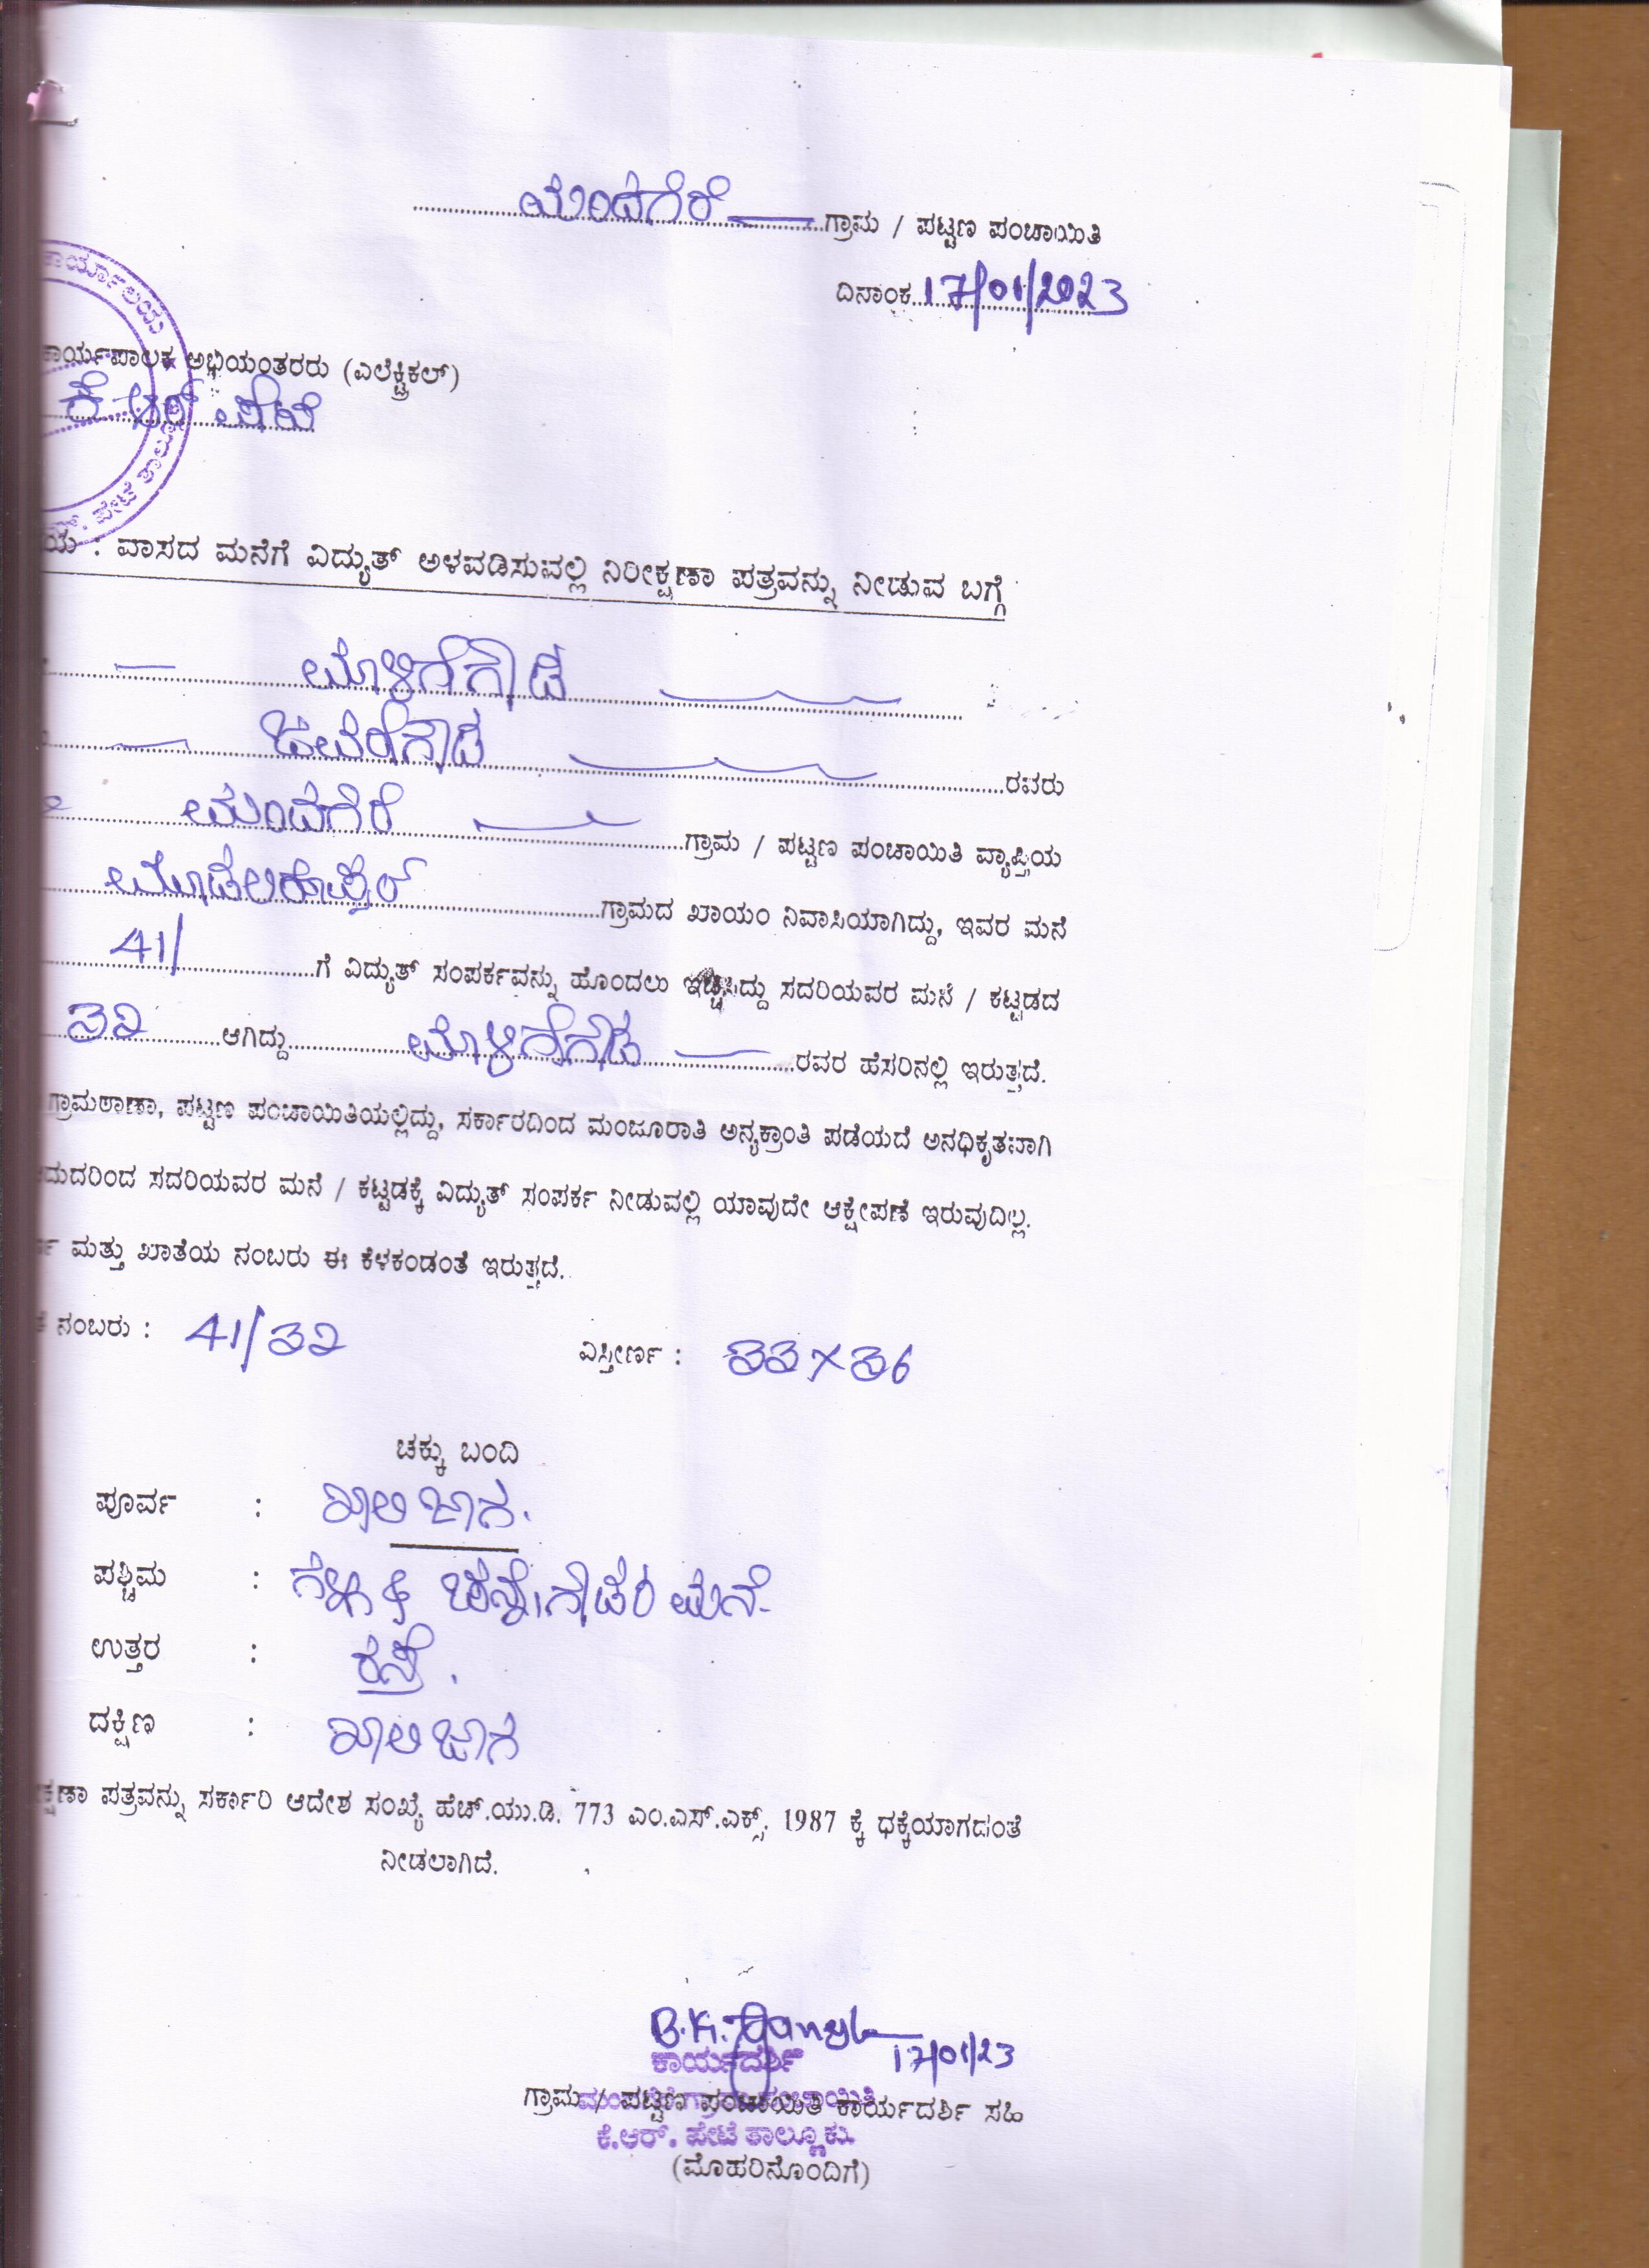 ಮಂದಗೆರೆ ಗ್ರಾಮ / ಪಟ್ಟಣ ಪಂಚಾಯಿತಿ
ದಿನಾಂಕ 17/01/2023
ಕಾರ್ಯಾಲಯ
ಕಾರ್ಯಪಾಲಕ ಅಭಿಯಂತರರು (ಎಲೆಕ್ಟ್ರಿಕಲ್)
ಕೆ ಆರ್ ಪೇಟೆ
ಪೇಟೆ ತಾಲ್ಲೂಕು
ಯ : ವಾಸದ ಮನೆಗೆ ವಿದ್ಯುತ್ ಅಳವಡಿಸುವಲ್ಲಿ ನಿರೀಕ್ಷಣಾ ಪತ್ರವನ್ನು ನೀಡುವ ಬಗ್ಗೆ
ಮೊಳ್ಳೇಗೌಡ
ಜವರೇಗೌಡ ರವರು
ಮಂದಗೆರೆ ಗ್ರಾಮ / ಪಟ್ಟಣ ಪಂಚಾಯಿತಿ ವ್ಯಾಪ್ತಿಯ
ಗ್ರಾಮದ ಖಾಯಂ ನಿವಾಸಿಯಾಗಿದ್ದು, ಇವರ ಮನೆ
41/ ಗೆ ವಿದ್ಯುತ್ ಸಂಪರ್ಕವನ್ನು ಹೊಂದಲು ಇಚ್ಚಿಸಿದ್ದು ಸದರಿಯವರ ಮನೆ / ಕಟ್ಟಡದ
32 ಆಗಿದ್ದು ಮೊಳ್ಳೇಗೌಡ ರವರ ಹೆಸರಿನಲ್ಲಿ ಇರುತ್ತದೆ.
ಗ್ರಾಮಠಾಣಾ, ಪಟ್ಟಣ ಪಂಚಾಯಿತಿಯಲ್ಲಿದ್ದು, ಸರ್ಕಾರದಿಂದ ಮಂಜೂರಾತಿ ಅನ್ಯಕ್ರಾಂತಿ ಪಡೆಯದೆ ಅನಧಿಕೃತವಾಗಿ
ಮದರಿಂದ ಸದರಿಯವರ ಮನೆ / ಕಟ್ಟಡಕ್ಕೆ ವಿದ್ಯುತ್ ಸಂಪರ್ಕ ನೀಡುವಲ್ಲಿ ಯಾವುದೇ ಆಕ್ಷೇಪಣೆ ಇರುವುದಿಲ್ಲ.
ಮತ್ತು ಖಾತೆಯ ನಂಬರು ಈ ಕೆಳಕಂಡಂತೆ ಇರುತ್ತದೆ.
ನಂಬರು : 41/32 ವಿಸ್ತೀರ್ಣ : 33×36
ಚಕ್ಕು ಬಂದಿ
ಪೂರ್ವ : ಖಾಲಿ ಜಾಗ.
ಪಶ್ಚಿಮ : ಗಲ್ಲಿ & ಚನ್ನೇಗೌಡರ ಮನೆ
ಉತ್ತರ : ರಸ್ತೆ.
ದಕ್ಷಿಣ : ಖಾಲಿ ಜಾಗ
ಕ್ಷಣಾ ಪತ್ರವನ್ನು ಸರ್ಕಾರಿ ಆದೇಶ ಸಂಖ್ಯೆ ಹೆಚ್.ಯು.ಡಿ. 773 ಎಂ.ಎಸ್.ಎಕ್ಸ್. 1987 ಕ್ಕೆ ಧಕ್ಕೆಯಾಗದಂತೆ
ನೀಡಲಾಗಿದೆ.
17/01/23
ಕಾರ್ಯದರ್ಶಿ
ಗ್ರಾಮ / ಪಟ್ಟಣ ಪಂಚಾಯಿತಿ ಕಾರ್ಯದರ್ಶಿ ಸಹಿ
ಕೆ.ಆರ್. ಪೇಟೆ ತಾಲ್ಲೂಕು.
(ಮೊಹರಿನೊಂದಿಗೆ)